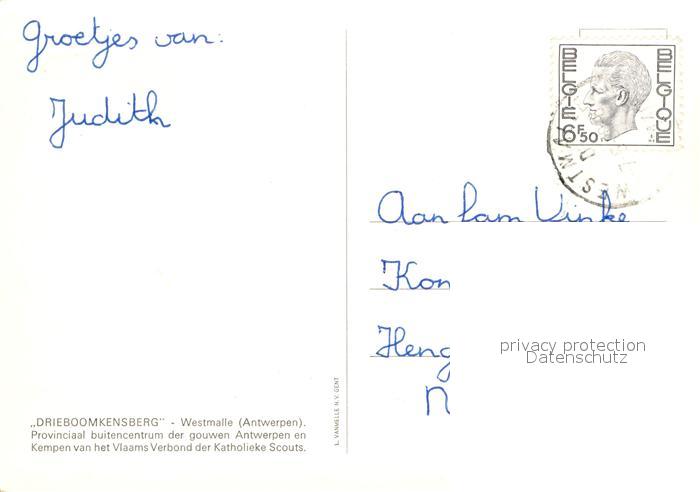 Groetjes van:
Judith
BELGIE
BELGIQUE
6F50
Aan fam Vinke
Kon
Heng
N
privacy protection
Datenschutz
„DRIEBOOMKENSBERG" - Westmalle (Antwerpen).
Provinciaal buitencentrum der gouwen Antwerpen en
Kempen van het Vlaams Verbond der Katholieke Scouts.
L. VANMELLE N.V. GENT